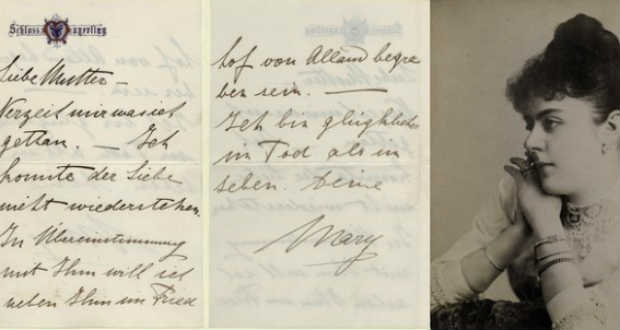 Schloss Mayerling
Liebe Mutter –
Verzeih mir was ich
gethan. – Ich
konnte der Liebe
nicht wiederstehen.
In Übereinstimmung
mit Ihm will ich
neben Ihm im Fried
Schloss Mayerling
hof von Alland begra
ben sein. –
Ich bin glücklicher
im Tod als im
Leben. Deine
Mary